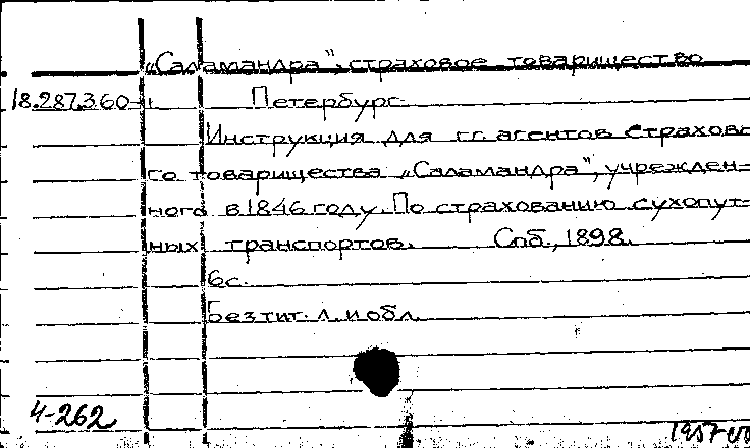 „Саламандра", страховое товарищество
18.287.3.60
Петербург.
Инструкция для г.г. агентов Страхово
го товарищества „Саламандра", учрежден-
ного в 1846 году. По страхованию сухопут-
ных транспортов. Спб., 1898.
6с.
Без тит. л. и обл.
4-262
1957